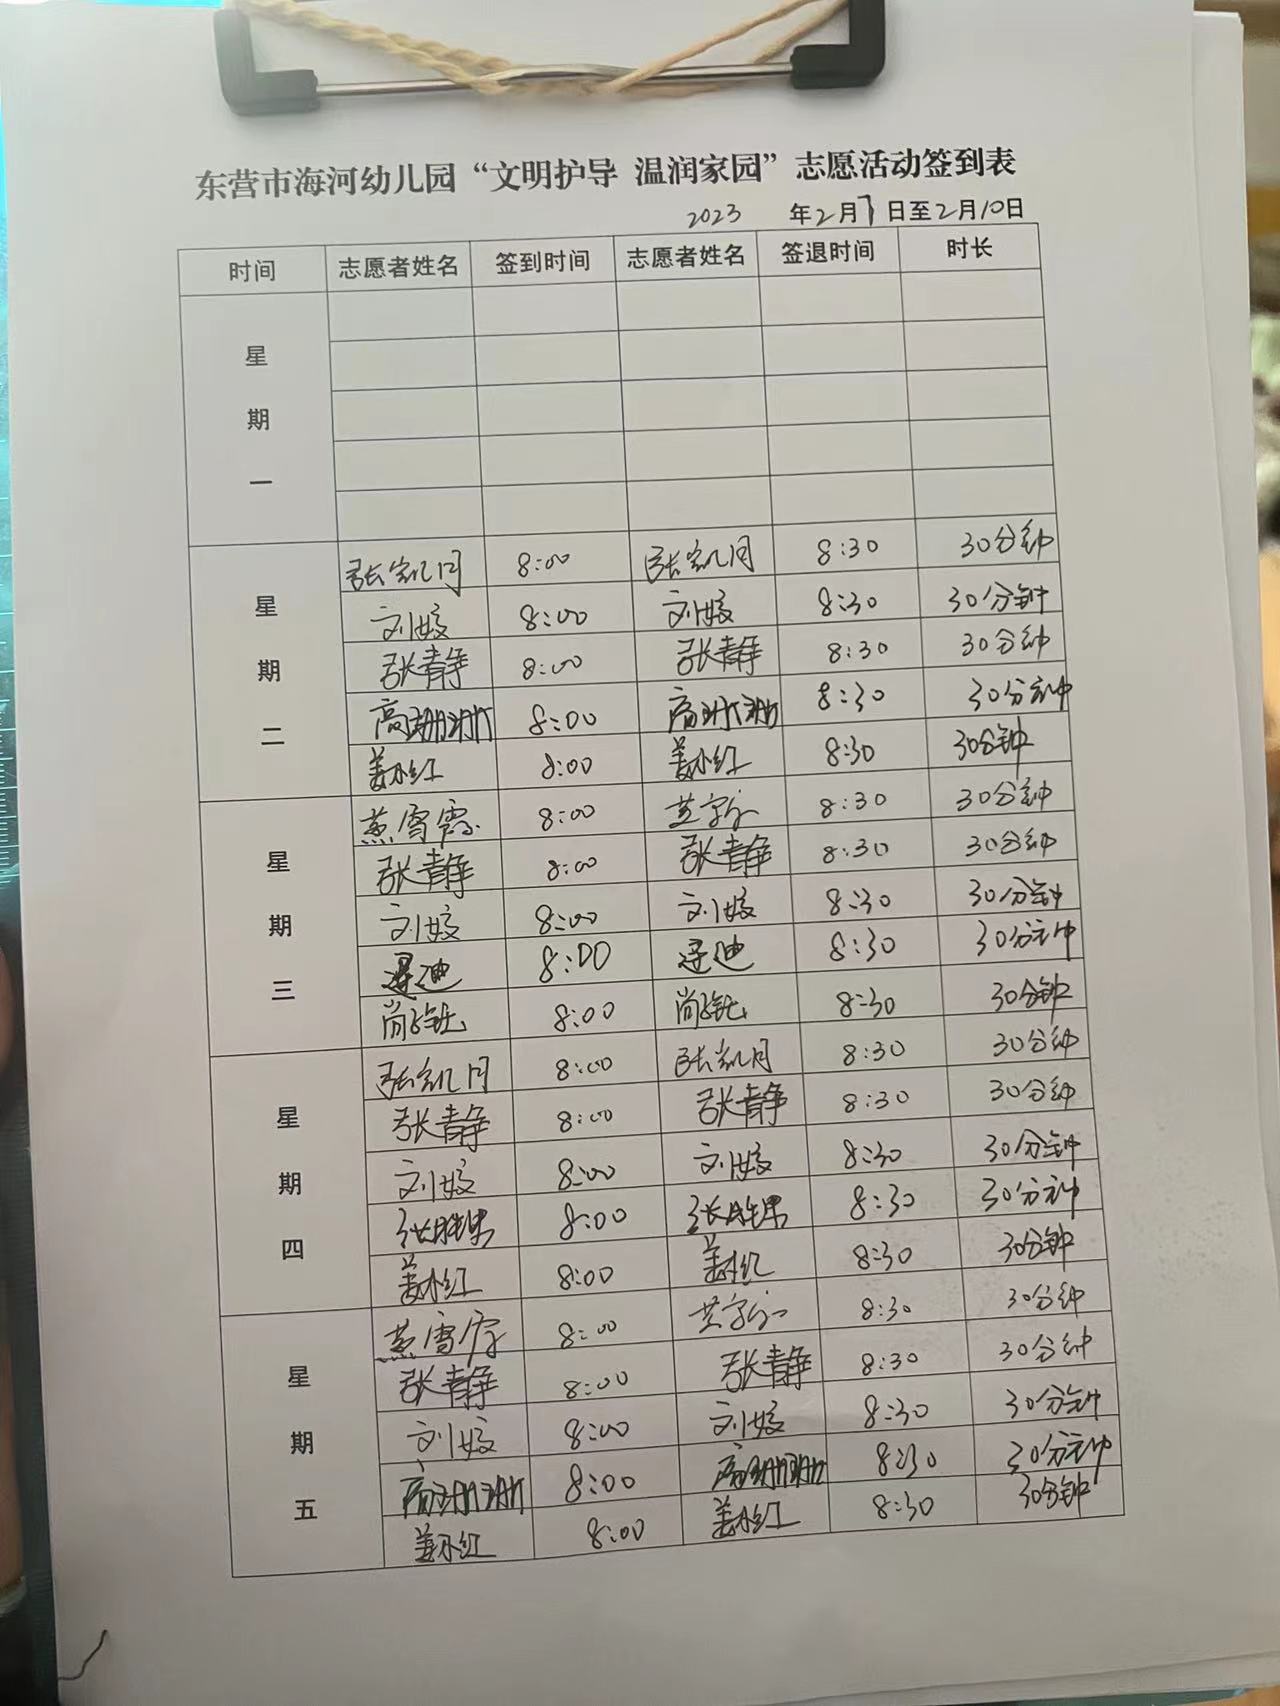 东营市海河幼儿园“文明护导 温润家园”志愿活动签到表
2023 年2月7日至2月10日
时间 志愿者姓名 签到时间 志愿者姓名 签退时间 时长
星期一
星期二
张凯月 8:00 张凯月 8:30 30分钟
刘姣 8:00 刘姣 8:30 30分钟
张静 8:00 张静 8:30 30分钟
高珊珊 8:00 高珊珊 8:30 30分钟
姜小红 8:00 姜小红 8:30 30分钟
星期三
燕雪霞 8:00 8:30 30分钟
张静 8:00 张静 8:30 30分钟
刘姣 8:00 刘姣 8:30 30分钟
迪 8:00 迪 8:30 30分钟
尚 8:00 尚 8:30 30分钟
星期四
张凯月 8:00 张凯月 8:30 30分钟
张静 8:00 张静 8:30 30分钟
刘姣 8:00 刘姣 8:30 30分钟
张胜男 8:00 张胜男 8:30 30分钟
姜小红 8:00 姜小红 8:30 30分钟
星期五
燕雪霞 8:00 8:30 30分钟
张静 8:00 张静 8:30 30分钟
刘姣 8:00 刘姣 8:30 30分钟
高珊珊 8:00 高珊珊 8:30 30分钟
姜小红 8:00 姜小红 8:30 30分钟